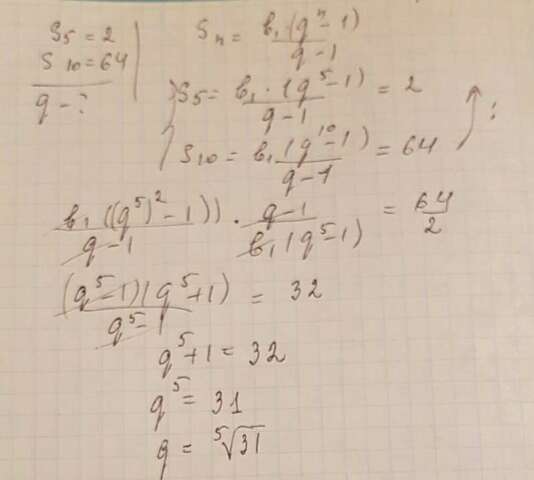 S₅ = 2
S₁₀ = 64
q - ?
Sₙ = b₁ (qⁿ - 1) / q - 1
S₅ = b₁ · (q⁵ - 1) / q - 1 = 2
S₁₀ = b₁ (q¹⁰ - 1) / q - 1 = 64 :
b₁ ((q⁵)² - 1)) / q - 1 · q - 1 / b₁ (q⁵ - 1) = 64 / 2
(q⁵ - 1)(q⁵ + 1) / q⁵ - 1 = 32
q⁵ + 1 = 32
q⁵ = 31
q = ⁵√31